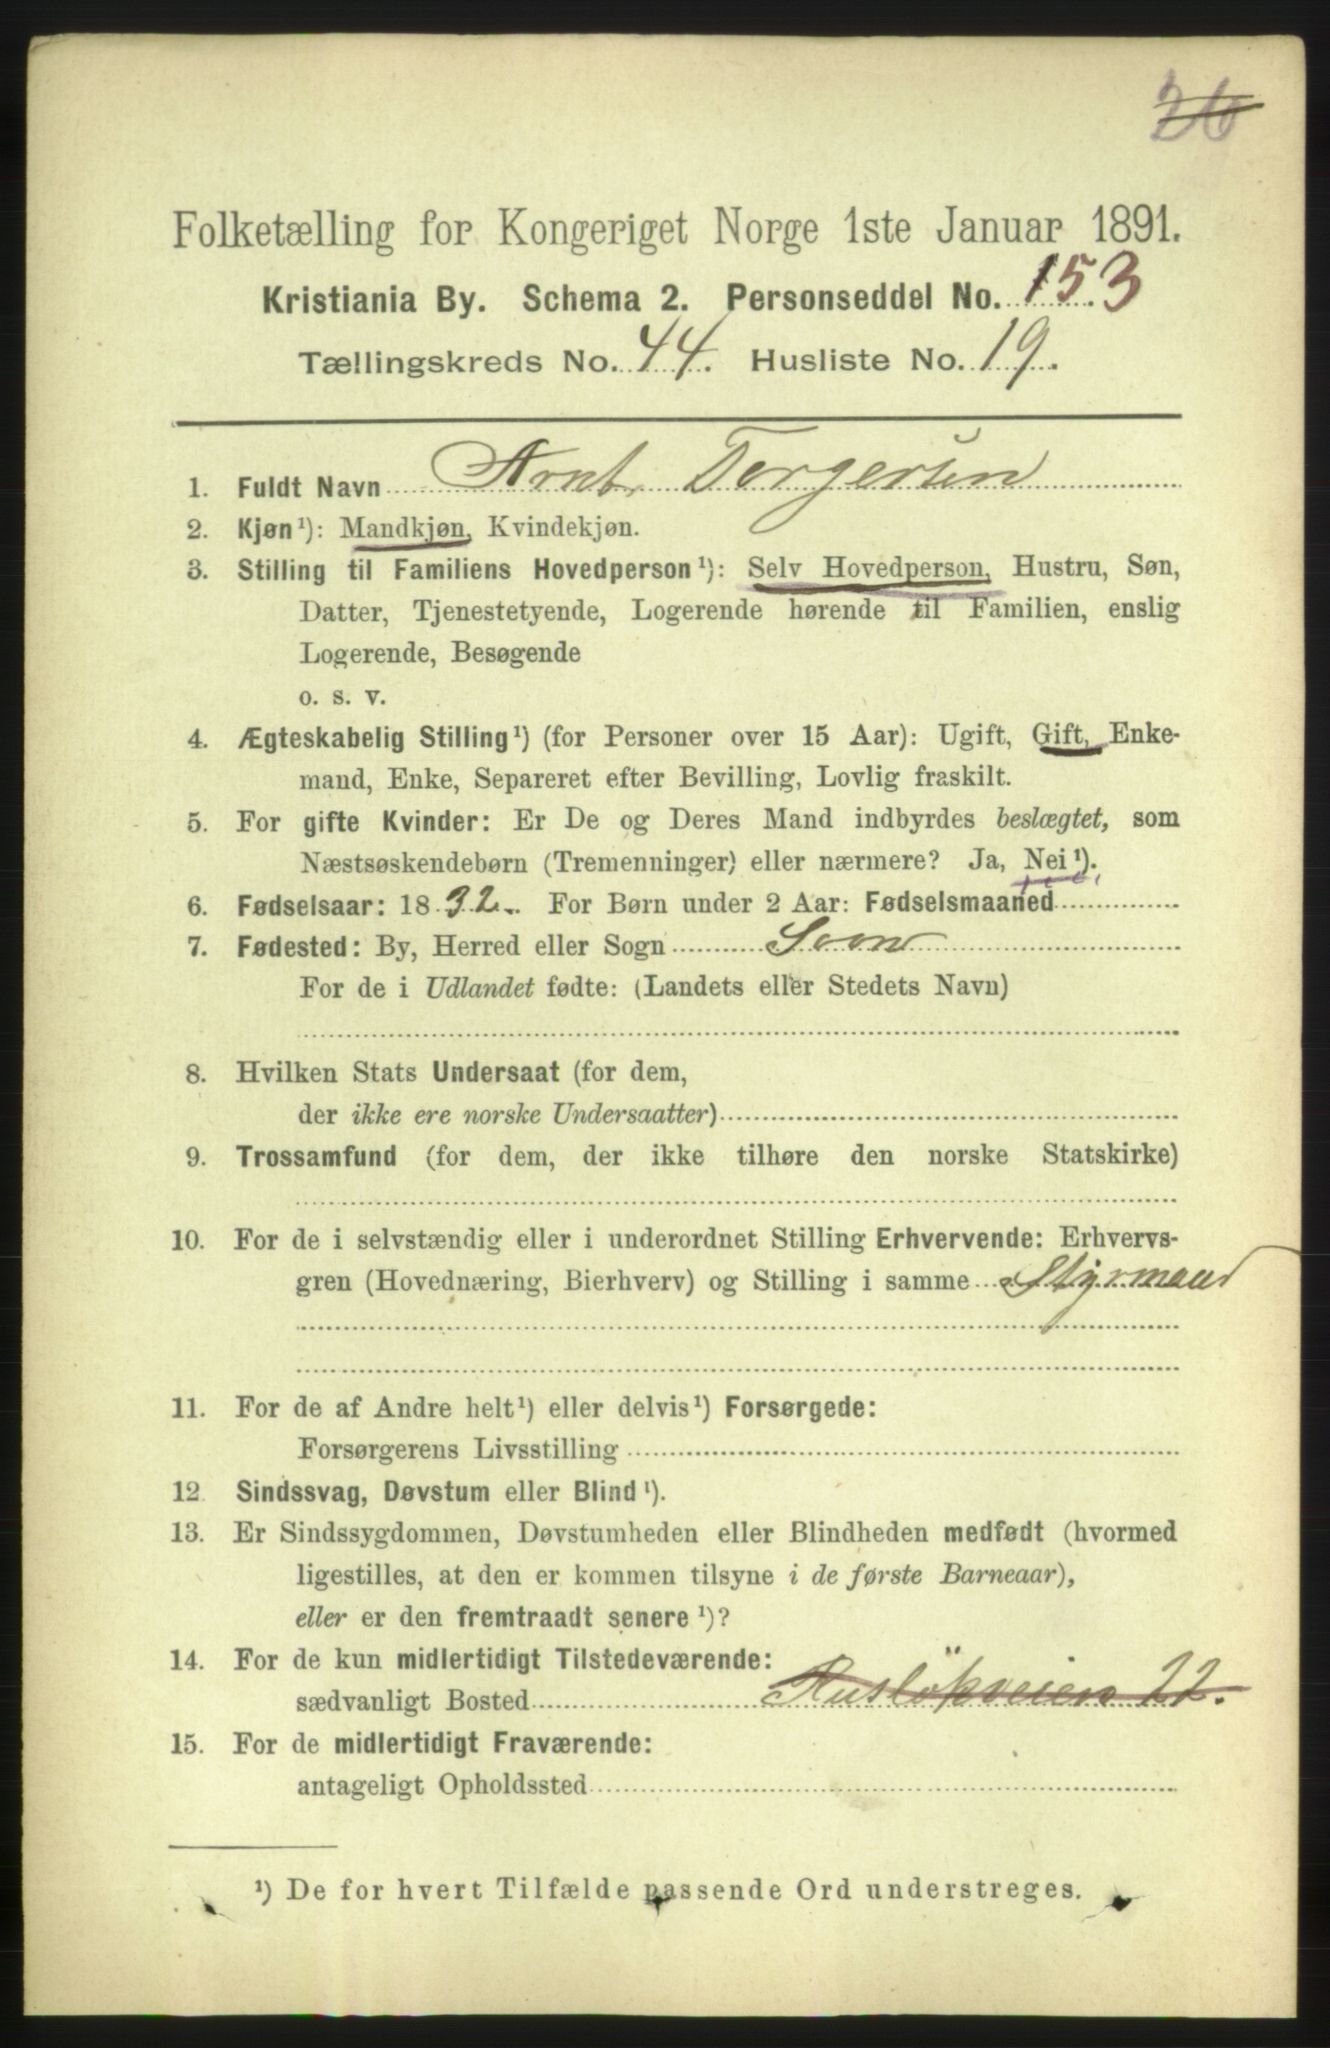 26
Folketælling for Kongeriget Norge 1ste Januar 1891.
Kristiania By. Schema 2. Personseddel No. 153
Tællingskreds No. 44. Husliste No. 19.
1. Fuldt Navn Arnt Torgersen
2. Kjøn¹): Mandkjøn, Kvindekjøn.
3. Stilling til Familiens Hovedperson¹): Selv Hovedperson, Hustru, Søn,
Datter, Tjenestetyende, Logerende hørende til Familien, enslig
Logerende, Besøgende
o. s. v.
4. Ægteskabelig Stilling¹) (for Personer over 15 Aar): Ugift, Gift, Enke-
mand, Enke, Separeret efter Bevilling, Lovlig fraskilt.
5. For gifte Kvinder: Er De og Deres Mand indbyrdes beslægtet, som
Næstsøskendebørn (Tremenninger) eller nærmere? Ja, Nei¹).
6. Fødselsaar: 1832. For Børn under 2 Aar: Fødselsmaaned
7. Fødested: By, Herred eller Sogn Soon
For de i Udlandet fødte: (Landets eller Stedets Navn)
8. Hvilken Stats Undersaat (for dem,
der ikke ere norske Undersaatter)
9. Trossamfund (for dem, der ikke tilhøre den norske Statskirke)
10. For de i selvstændig eller i underordnet Stilling Erhvervende: Erhvervs-
gren (Hovednæring, Bierhverv) og Stilling i samme Styrmand
11. For de af Andre helt¹) eller delvis¹) Forsørgede:
Forsørgerens Livsstilling
12 Sindssvag, Døvstum eller Blind¹).
13. Er Sindssygdommen, Døvstumheden eller Blindheden medfødt (hvormed
ligestilles, at den er kommen tilsyne i de første Barneaar),
eller er den fremtraadt senere¹)?
14. For de kun midlertidigt Tilstedeværende:
sædvanligt Bosted Ruslökveien 22.
15. For de midlertidigt Fraværende:
antageligt Opholdssted
¹) De for hvert Tilfælde passende Ord understreges.